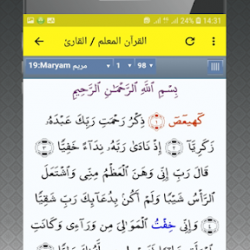 24% 14:31
القرآن المعلم / القارئ
19:Maryam مريم 1 98
بِسْمِ ٱللَّهِ ٱلرَّحْمَٰنِ ٱلرَّحِيمِ
كٓهيعٓصٓ ١ ذِكْرُ رَحْمَتِ رَبِّكَ عَبْدَهُۥ
زَكَرِيَّآ ٢ إِذْ نَادَىٰ رَبَّهُۥ نِدَآءً خَفِيًّا ٣
قَالَ رَبِّ إِنِّى وَهَنَ ٱلْعَظْمُ مِنِّى وَٱشْتَعَلَ
ٱلرَّأْسُ شَيْبًا وَلَمْ أَكُنۢ بِدُعَآئِكَ رَبِّ شَقِيًّا
٤ وَإِنِّى خِفْتُ ٱلْمَوَٰلِىَ مِن وَرَآءِى وَكَانَتِ